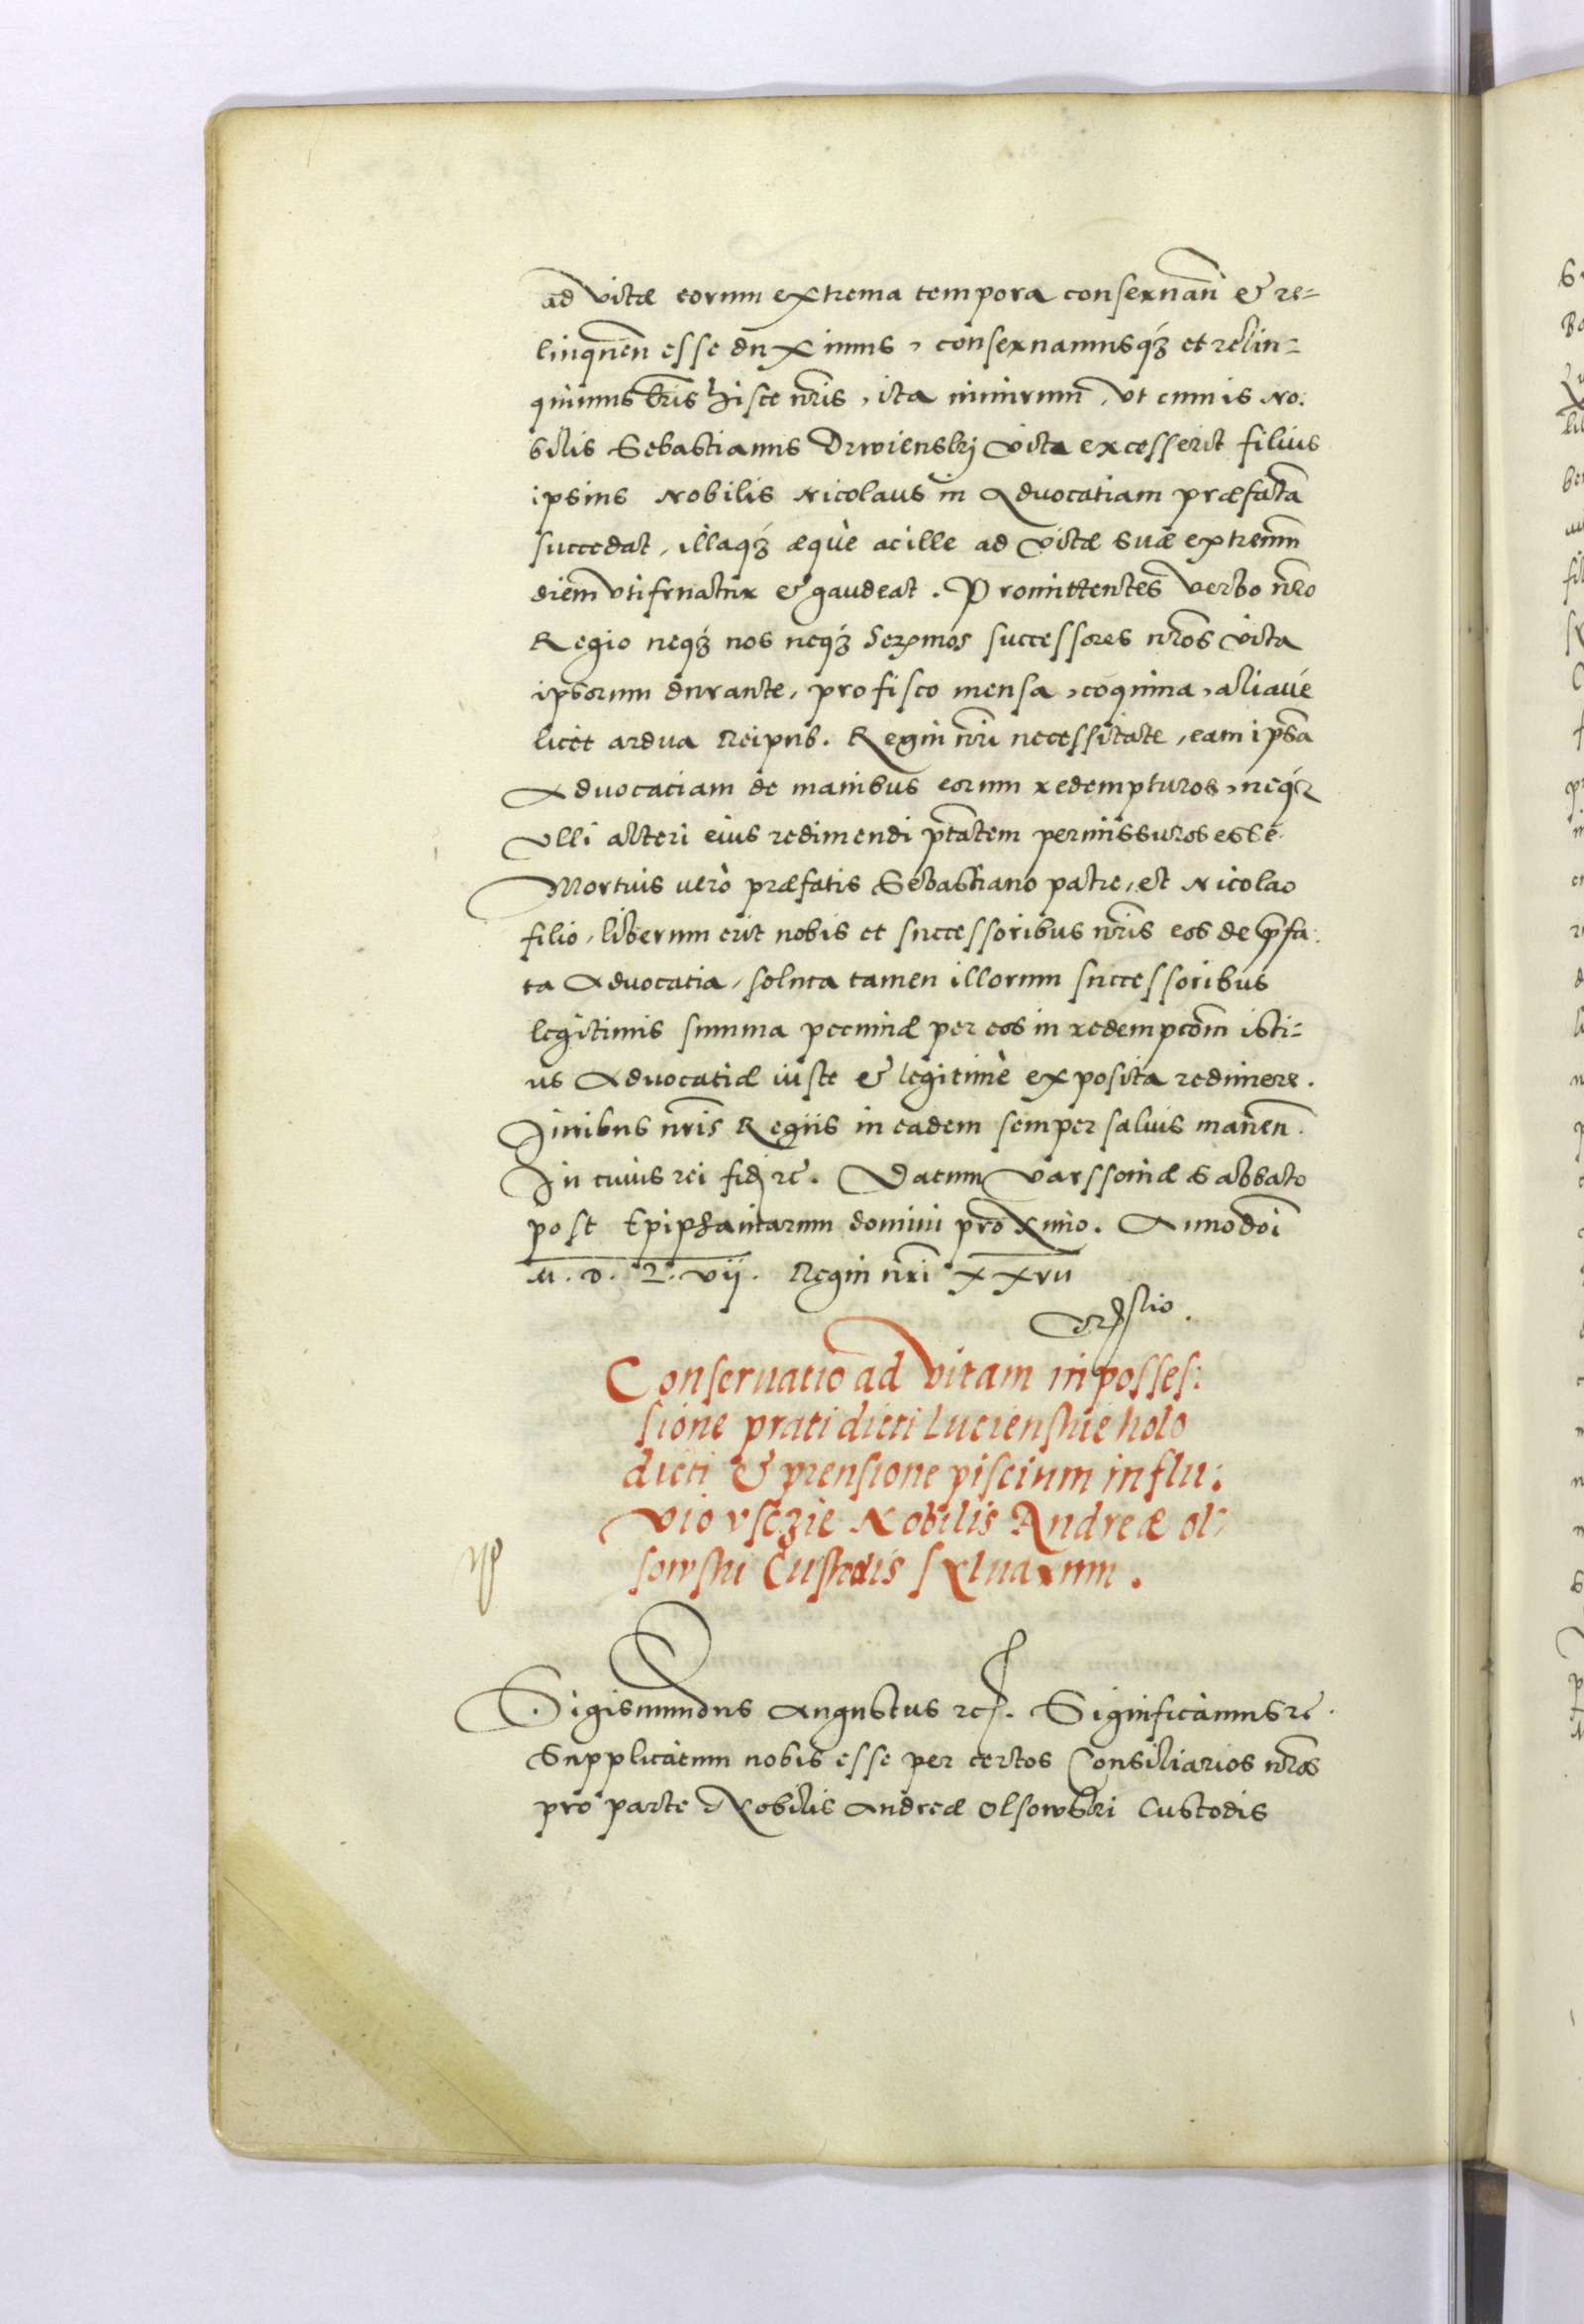 ad vitæ eorum extrema tempora conseruan̄ & re=
linquen̄ esse duximus, conseruamusqꝫ et relin=
quimus lr̄is hisce nr̄is, ita nimirum, vt cum is No:
bilis Sebastianus Drwienskj vita excesserit filius
ipsius Nobilis Nicolaus in Aduocatiam præfatā
succedat, illaqꝫ æquè ac ille ad vitæ suæ extremū
diem vtifruatur & gaudeat. Promittentes verbo nr̄o
Regio neqꝫ nos neqꝫ Serꝫmos successores nr̄os vita
ipsorum durante, pro fisco mensa, coquina, aliaué
licet ardua Reipub. Regni nr̄i necessitate, eam ip̄sā
Aduocaciam de manibus eorum redempturos, neqꝫ
vlli alteri eius redimendi p̄tatem permissuros esse.
Mortuis uerò præfatis Sebastiano patre, et Nicolao
filio, liberum erit nobis et successoribus nr̄is eos de p̄fa:
ta Aduocatia, soluta tamen illorum successoribus
legitimis summa pecuniæ per eos in redempcōm isti=
us Aduocatiæ iuste & legitimè exposita redimere.
Juribus nr̄is Regiis in eadem semper saluis manen̄.
In cuius rei fidꝫ rc̄. Datum Varssouiæ Sabbato
post Epiphaniarum domini proximo. Anno doī
M. D. L. vij. Regni nr̄i xxvii
Conseruatio ad vitam in posses:
sione prati dicti Lucienskie holo
dicti & prensione piscium in flu:
vio vsczie Nobilis Andreæ ol:
sowski Custodis syluarum.
Sigismundus Augustus rc̄. Significamus rc̄.
Supplicatum nobis esse per certos Consiliarios nr̄os
pro parte Nobilis Andreæ Olsowski Custodis